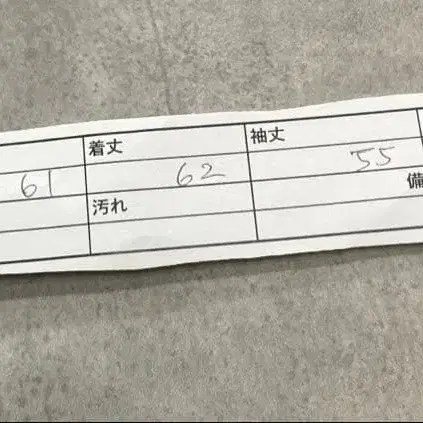 着丈 袖丈
61 62 55
汚れ 備